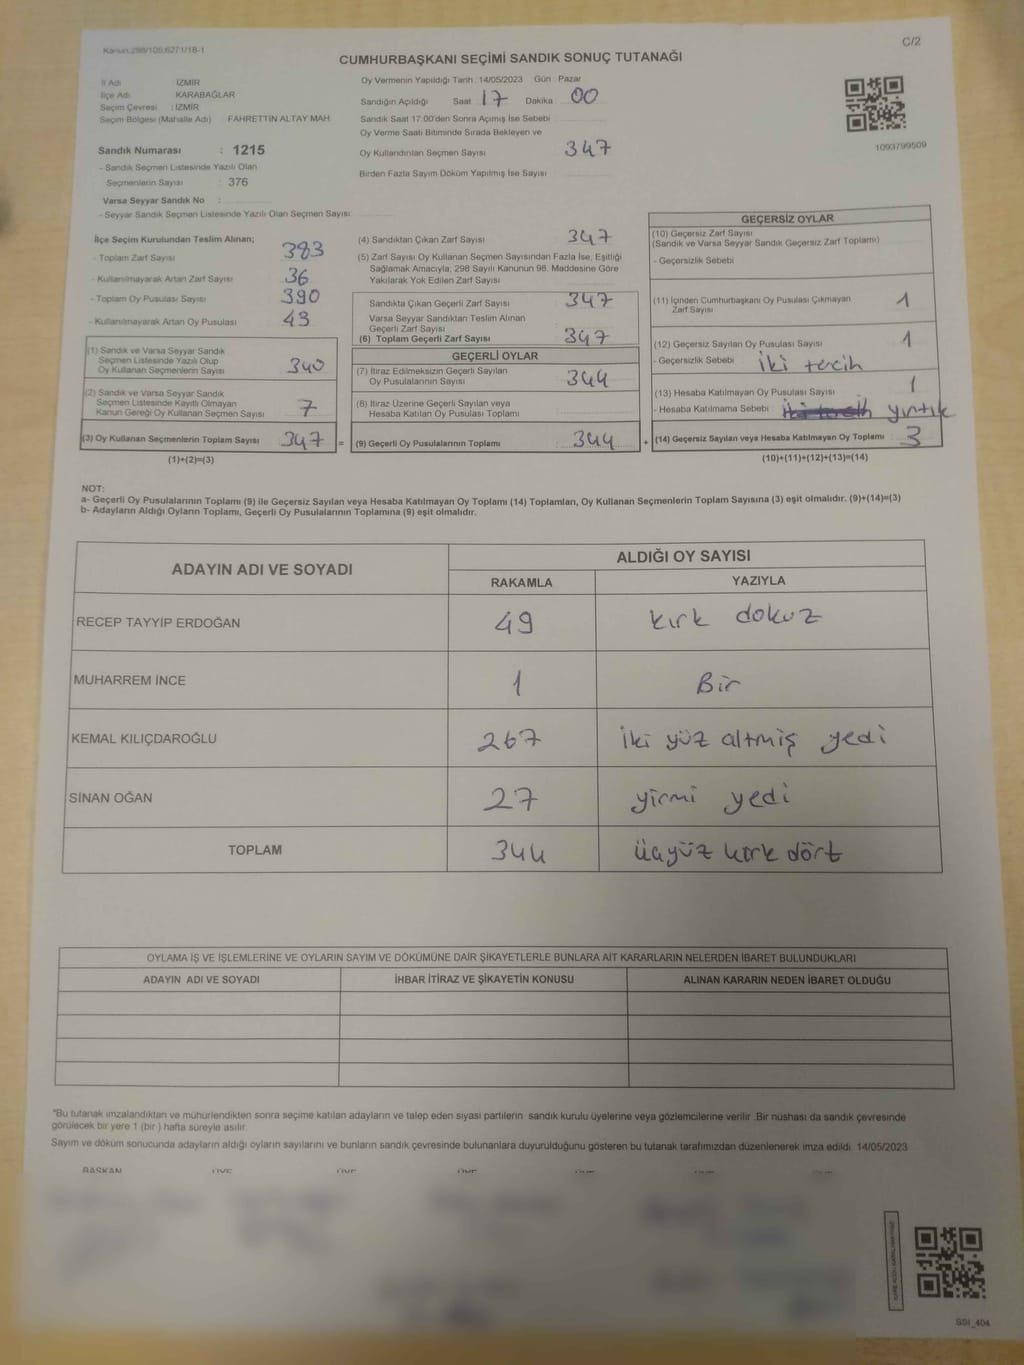 Kanun:298/105;6271/18-1
C/2
CUMHURBAŞKANI SEÇİMİ SANDIK SONUÇ TUTANAĞI
İl Adı : İZMİR
İlçe Adı : KARABAĞLAR
Seçim Çevresi : İZMİR
Seçim Bölgesi (Mahalle Adı) : FAHRETTİN ALTAY MAH.
Sandık Numarası : 1215
- Sandık Seçmen Listesinde Yazılı Olan
Seçmenlerin Sayısı : 376
Varsa Seyyar Sandık No :
- Seyyar Sandık Seçmen Listesinde Yazılı Olan Seçmen Sayısı:
Oy Vermenin Yapıldığı Tarih : 14/05/2023 Gün : Pazar
Sandığın Açıldığı Saat 17 Dakika 00
Sandık Saat 17:00'den Sonra Açımış İse Sebebi
Oy Verme Saati Bitiminde Sırada Bekleyen ve
Oy Kullandırılan Seçmen Sayısı 347
Birden Fazla Sayım Döküm Yapılmış İse Sayısı
1093799509
İlçe Seçim Kurulundan Teslim Alınan;
- Toplam Zarf Sayısı 383
- Kullanılmayarak Artan Zarf Sayısı 36
- Toplam Oy Pusulası Sayısı 390
- Kullanılmayarak Artan Oy Pusulası 43
(1) Sandık ve Varsa Seyyar Sandık
Seçmen Listesinde Yazılı Olup
Oy Kullanan Seçmenlerin Sayısı 340
(2) Sandık ve Varsa Seyyar Sandık
Seçmen Listesinde Kayıtlı Olmayan
Kanun Gereği Oy Kullanan Seçmen Sayısı 7
(3) Oy Kullanan Seçmenlerin Toplam Sayısı 347 =
(1)+(2)=(3)
(4) Sandıktan Çıkan Zarf Sayısı 347
(5) Zarf Sayısı Oy Kullanan Seçmen Sayısından Fazla İse, Eşitliği
Sağlamak Amacıyla; 298 Sayılı Kanunun 98. Maddesine Göre
Yakılarak Yok Edilen Zarf Sayısı
Sandıkta Çıkan Geçerli Zarf Sayısı 347
Varsa Seyyar Sandıktan Teslim Alınan
Geçerli Zarf Sayısı
(6) Toplam Geçerli Zarf Sayısı 347
GEÇERLİ OYLAR
(7) İtiraz Edilmeksizin Geçerli Sayılan
Oy Pusulalarının Sayısı 344
(8) İtiraz Üzerine Geçerli Sayılan veya
Hesaba Katılan Oy Pusulası Toplamı
(9) Geçerli Oy Pusulalarının Toplamı 344 +
GEÇERSİZ OYLAR
(10) Geçersiz Zarf Sayısı
(Sandık ve Varsa Seyyar Sandık Geçersiz Zarf Toplamı)
- Geçersizlik Sebebi
(11) İçinden Cumhurbaşkanı Oy Pusulası Çıkmayan
Zarf Sayısı 1
(12) Geçersiz Sayılan Oy Pusulası Sayısı 1
- Geçersizlik Sebebi iki tercih
(13) Hesaba Katılmayan Oy Pusulası Sayısı 1
- Hesaba Katılmama Sebebi iki tercih yırtık
(14) Geçersiz Sayılan veya Hesaba Katılmayan Oy Toplamı 3
(10)+(11)+(12)+(13)=(14)
NOT:
a- Geçerli Oy Pusulalarının Toplamı (9) ile Geçersiz Sayılan veya Hesaba Katılmayan Oy Toplamı (14) Toplamları, Oy Kullanan Seçmenlerin Toplam Sayısına (3) eşit olmalıdır. (9)+(14)=(3)
b- Adayların Aldığı Oyların Toplamı, Geçerli Oy Pusulalarının Toplamına (9) eşit olmalıdır.
ADAYIN ADI VE SOYADI
ALDIĞI OY SAYISI
RAKAMLA YAZIYLA
RECEP TAYYİP ERDOĞAN 49 kırk dokuz
MUHARREM İNCE 1 Bir
KEMAL KILIÇDAROĞLU 267 iki yüz altmış yedi
SİNAN OĞAN 27 yirmi yedi
TOPLAM 344 üçyüz kırk dört
OYLAMA İŞ VE İŞLEMLERİNE VE OYLARIN SAYIM VE DÖKÜMÜNE DAİR ŞİKAYETLERLE BUNLARA AİT KARARLARIN NELERDEN İBARET BULUNDUKLARI
ADAYIN ADI VE SOYADI İHBAR İTİRAZ VE ŞİKAYETİN KONUSU ALINAN KARARIN NEDEN İBARET OLDUĞU
*Bu tutanak imzalandıktan ve mühürlendikten sonra seçime katılan adayların ve talep eden siyasi partilerin sandık kurulu üyelerine veya gözlemcilerine verilir. Bir nüshası da sandık çevresinde
görülecek bir yere 1 (bir ) hafta süreyle asılır.
Sayım ve döküm sonucunda adayların aldığı oyların sayılarını ve bunların sandık çevresinde bulunanlara duyurulduğunu gösteren bu tutanak tarafımızdan düzenlenerek imza edildi. 14/05/2023
BAŞKAN ÜYE ÜYE ÜYE ÜYE ÜYE ÜYE
SSI_404